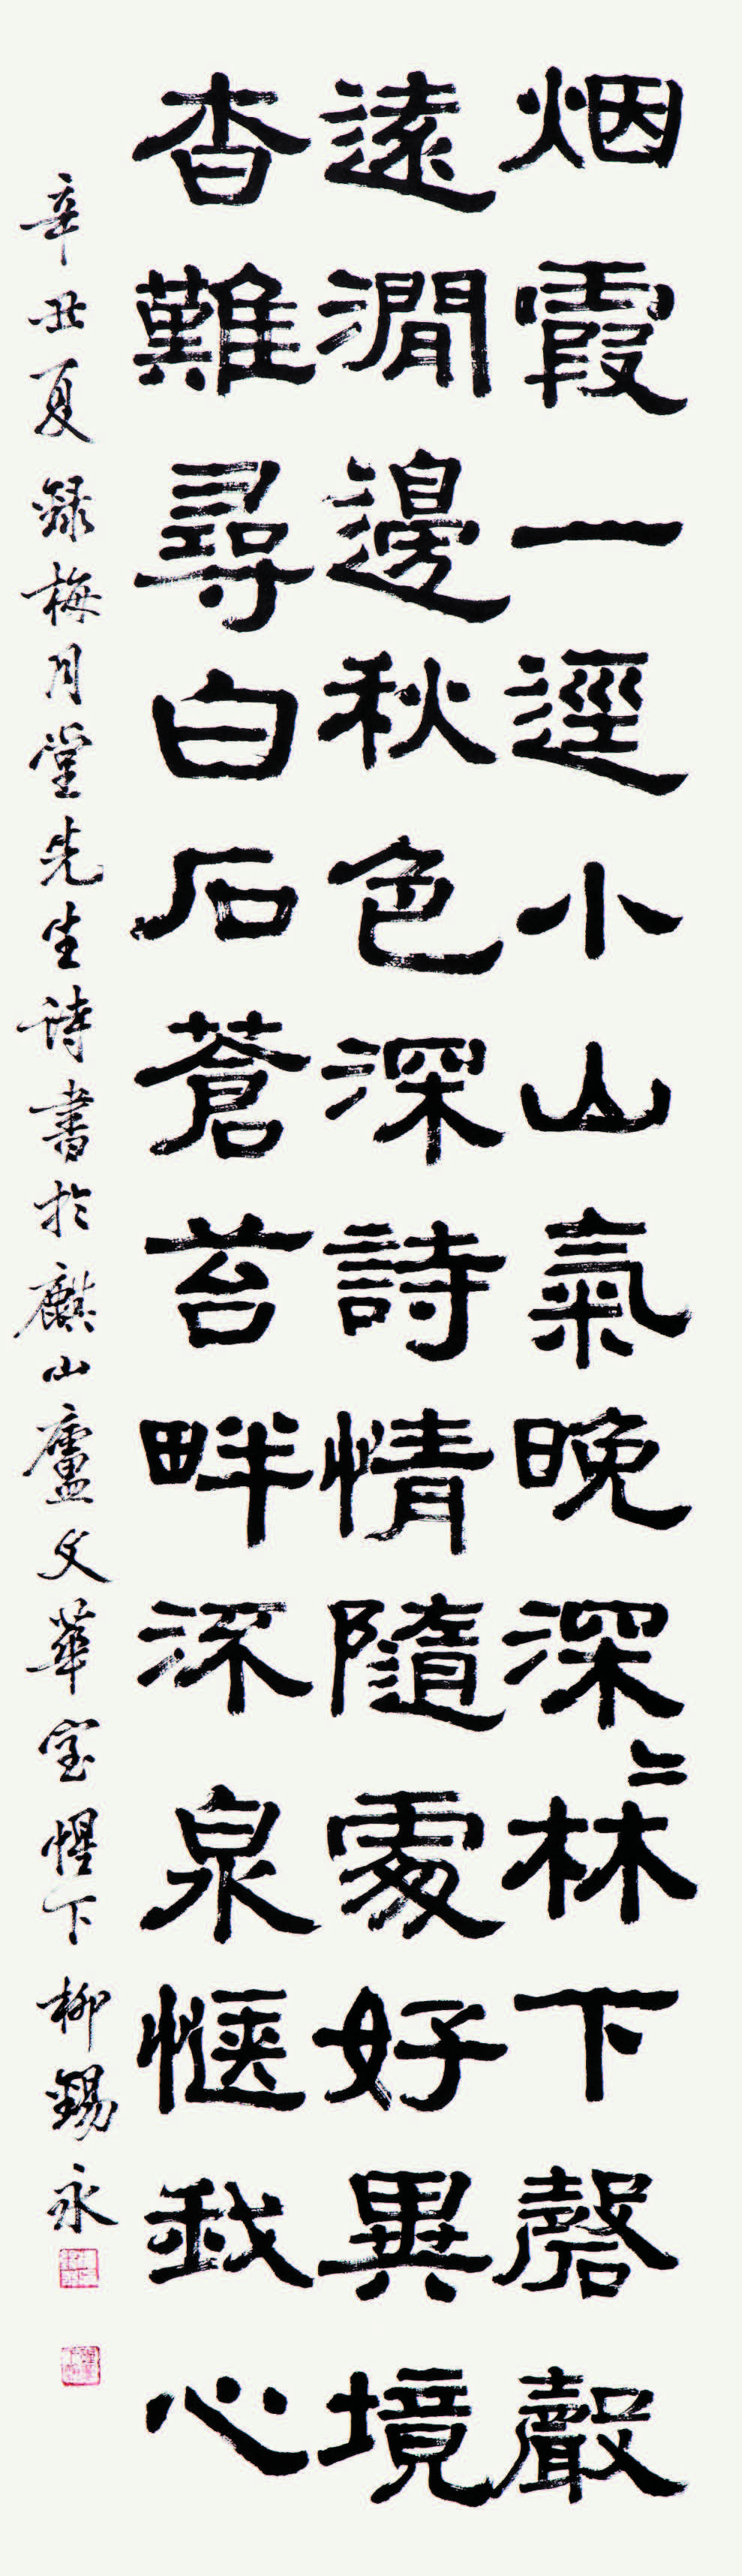 烟霞一逕小山氣晚深〻林下磬聲
遠澗邊秋色深詩情隨處好異境
杳難尋白石蒼苔畔㳅泉愜我心
辛丑夏錄梅月堂先生詩書於麒山廬文華室惺下柳錫永